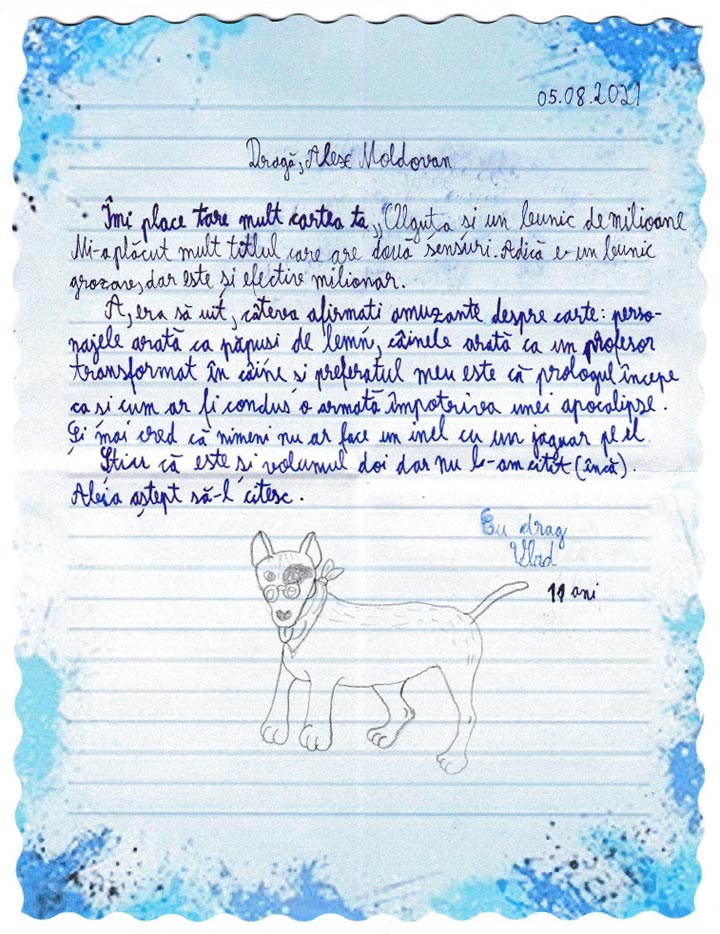 05.08.2021
Dragă, Alex Moldovan
Îmi place tare mult cartea ta „Olguța si un bunic de milioane
Mi-a plăcut mult titlul care are două sensuri. Adică e un bunic
grozav, dar este și efectiv milionar.
A, era să uit, câteva afirmati amuzante despre carte: perso-
najele arată ca păpusi de lemn, câinele arată ca un profesor
transformat în câine si preferatul meu este că prologul începe
ca si cum ar fi condus o armată împotriva unei apocalipse.
Și mai cred că nimeni nu ar face un inel cu un jaguar pe el.
Știu că este si volumul doi dar nu l-am citit (încă).
Abia aștept să-l citesc.
Cu drag
Vlad
11 ani